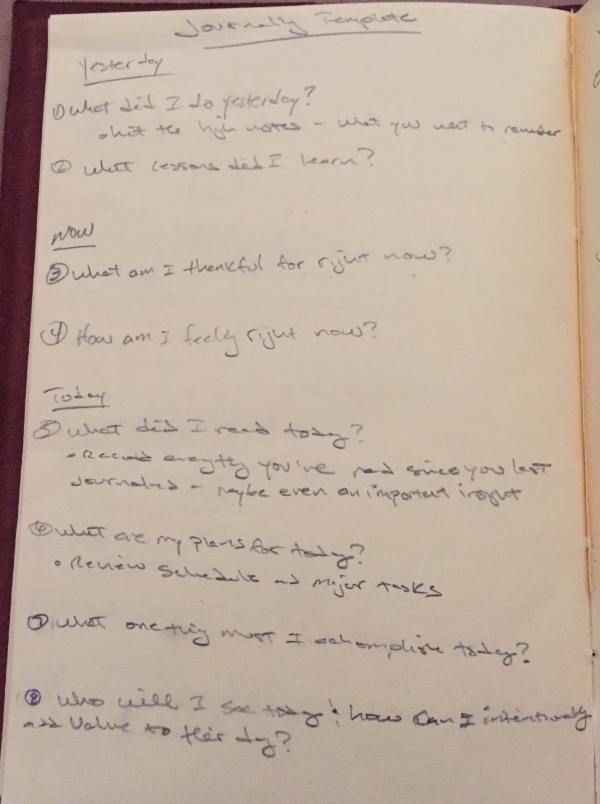 Journally Template
Yesterday
① What did I do yesterday?
• hit the high notes - what you want to remember
② What lessons did I learn?
Now
③ What am I thankful for right now?
④ How am I feeling right now?
Today
⑤ What did I read today?
• Record everything you've read since you last
journaled - maybe even an important insight
⑥ What are my plans for today?
• Review schedule and major tasks
⑦ What one thing must I accomplish today?
⑧ Who will I see today & how can I intentionally
add value to their day?